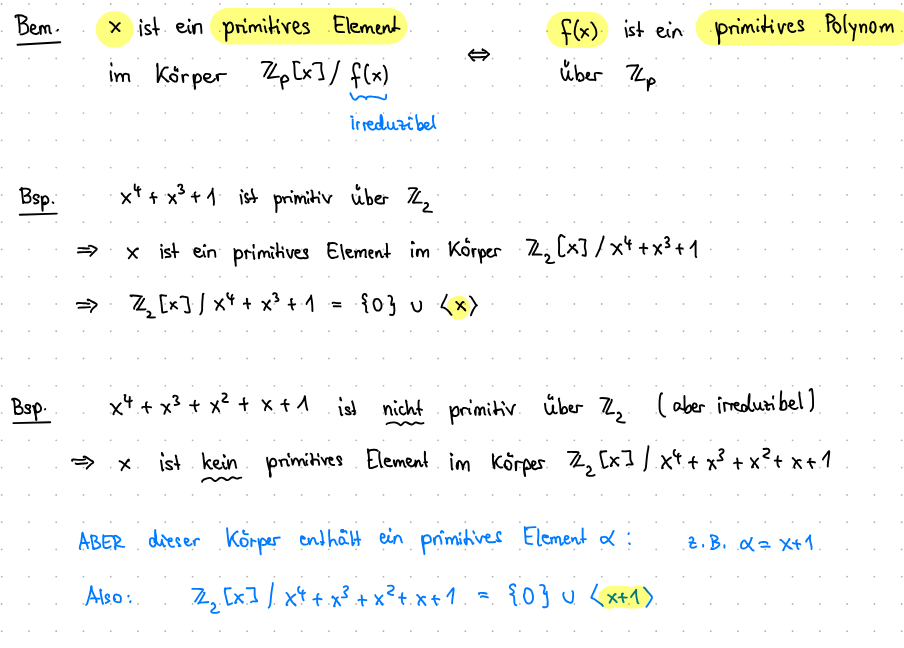 Bem. x ist ein primitives Element ⇔ f(x) ist ein primitives Polynom
im Körper ℤₚ[x]/f(x) über ℤₚ
irreduzibel
Bsp. x⁴ + x³ + 1 ist primitiv über ℤ₂
⇒ x ist ein primitives Element im Körper ℤ₂[x]/x⁴+x³+1
⇒ ℤ₂[x]/x⁴+x³+1 = {0} ∪ ⟨x⟩
Bsp. x⁴ + x³ + x² + x + 1 ist nicht primitiv über ℤ₂ (aber irreduzibel)
⇒ x ist kein primitives Element im Körper ℤ₂[x]/x⁴+x³+x²+x+1
ABER dieser Körper enthält ein primitives Element α: z.B. α = x+1
Also: ℤ₂[x]/x⁴+x³+x²+x+1 = {0} ∪ ⟨x+1⟩